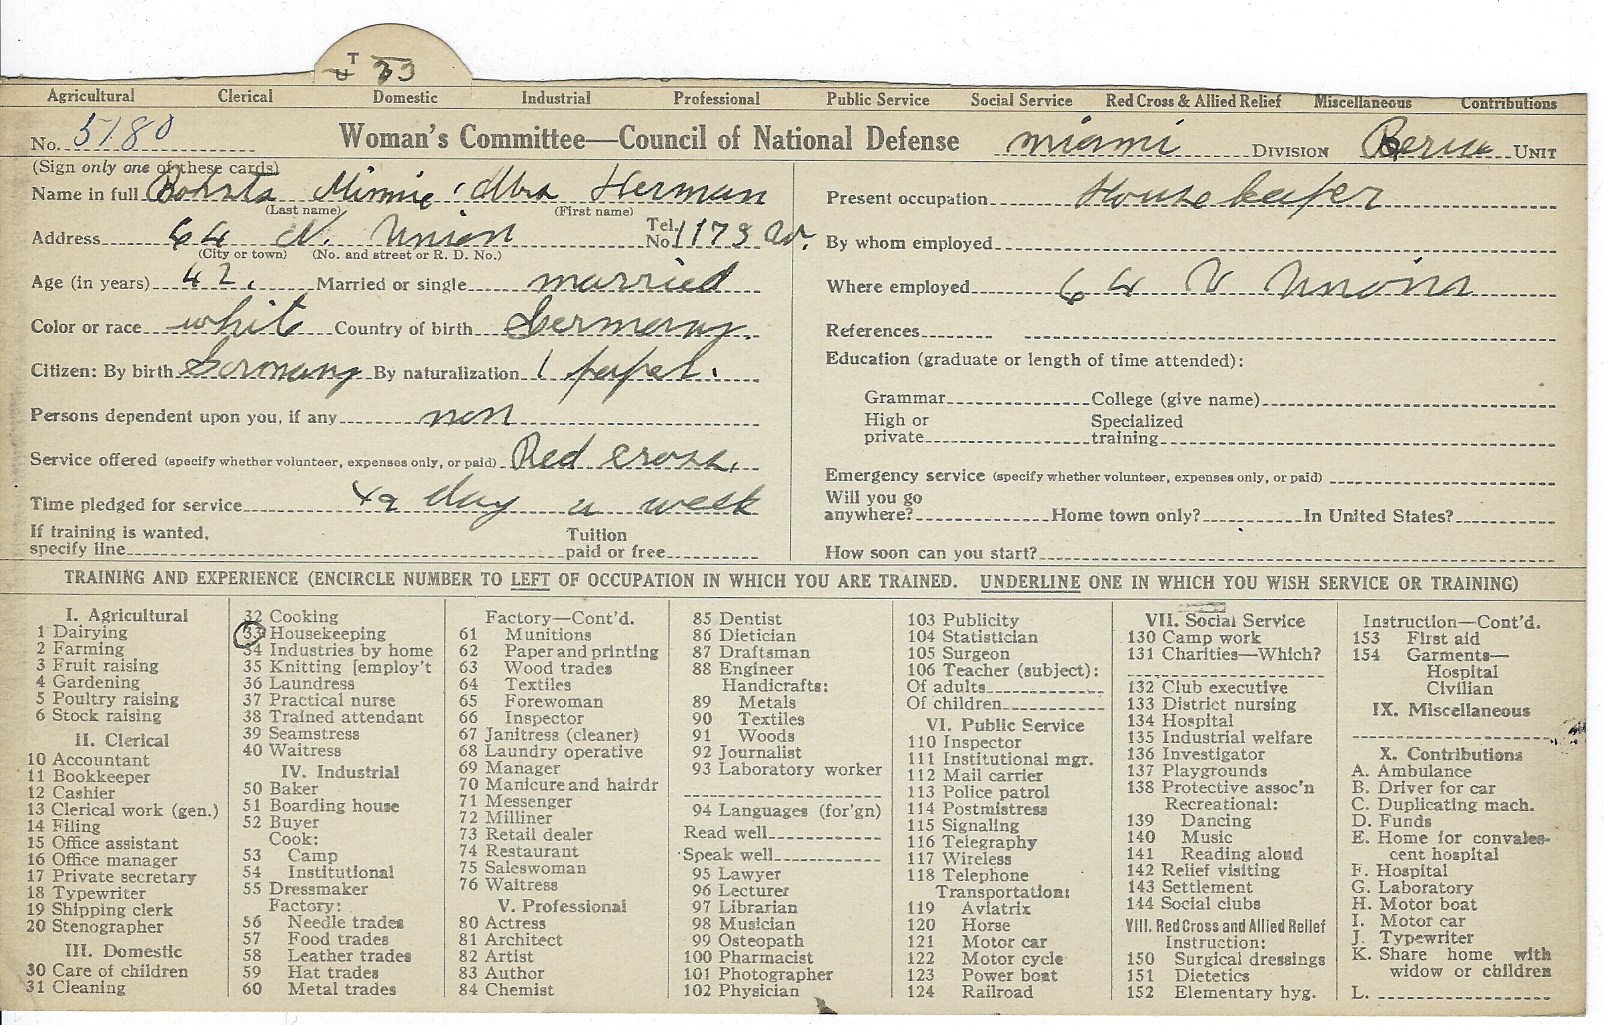 T 33
Agricultural Clerical Domestic Industrial Professional Public Service Social Service Red Cross & Allied Relief Miscellaneous Contributions
No. 5180 Woman's Committee—Council of National Defense Miami DIVISION UNIT
(Sign only one of these cards)
Name in full Minnie Mrs Herman
(Last name) (First name)
Address 64 N. Union Tel. No. 1173 W.
(City or town) (No. and street or R. D. No.)
Age (in years) 42. Married or single married
Color or race white Country of birth Germany.
Citizen: By birth Germany By naturalization 1 paper.
Persons dependent upon you, if any non
Service offered (specify whether volunteer, expenses only, or paid) Red cross.
Time pledged for service day a week
If training is wanted, specify line Tuition paid or free
Present occupation House keeper
By whom employed
Where employed 64 N Union
References
Education (graduate or length of time attended):
Grammar College (give name)
High or private Specialized training
Emergency service (specify whether volunteer, expenses only, or paid)
Will you go anywhere? Home town only? In United States?
How soon can you start?
TRAINING AND EXPERIENCE (ENCIRCLE NUMBER TO LEFT OF OCCUPATION IN WHICH YOU ARE TRAINED. UNDERLINE ONE IN WHICH YOU WISH SERVICE OR TRAINING)
I. Agricultural
1 Dairying
2 Farming
3 Fruit raising
4 Gardening
5 Poultry raising
6 Stock raising
II. Clerical
10 Accountant
11 Bookkeeper
12 Cashier
13 Clerical work (gen.)
14 Filing
15 Office assistant
16 Office manager
17 Private secretary
18 Typewriter
19 Shipping clerk
20 Stenographer
III. Domestic
30 Care of children
31 Cleaning
32 Cooking
33 Housekeeping
34 Industries by home
35 Knitting [employ't
36 Laundress
37 Practical nurse
38 Trained attendant
39 Seamstress
40 Waitress
IV. Industrial
50 Baker
51 Boarding house
52 Buyer
Cook:
53 Camp
54 Institutional
55 Dressmaker
Factory:
56 Needle trades
57 Food trades
58 Leather trades
59 Hat trades
60 Metal trades
Factory—Cont'd.
61 Munitions
62 Paper and printing
63 Wood trades
64 Textiles
65 Forewoman
66 Inspector
67 Janitress (cleaner)
68 Laundry operative
69 Manager
70 Manicure and hairdr
71 Messenger
72 Milliner
73 Retail dealer
74 Restaurant
75 Saleswoman
76 Waitress
V. Professional
80 Actress
81 Architect
82 Artist
83 Author
84 Chemist
85 Dentist
86 Dietician
87 Draftsman
88 Engineer
Handicrafts:
89 Metals
90 Textiles
91 Woods
92 Journalist
93 Laboratory worker
94 Languages (for'gn)
Read well
Speak well
95 Lawyer
96 Lecturer
97 Librarian
98 Musician
99 Osteopath
100 Pharmacist
101 Photographer
102 Physician
103 Publicity
104 Statistician
105 Surgeon
106 Teacher (subject):
Of adults
Of children
VI. Public Service
110 Inspector
111 Institutional mgr.
112 Mail carrier
113 Police patrol
114 Postmistress
115 Signaling
116 Telegraphy
117 Wireless
118 Telephone
Transportation:
119 Aviatrix
120 Horse
121 Motor car
122 Motor cycle
123 Power boat
124 Railroad
VII. Social Service
130 Camp work
131 Charities—Which?
132 Club executive
133 District nursing
134 Hospital
135 Industrial welfare
136 Investigator
137 Playgrounds
138 Protective assoc'n
Recreational:
139 Dancing
140 Music
141 Reading aloud
142 Relief visiting
143 Settlement
144 Social clubs
VIII. Red Cross and Allied Relief
Instruction:
150 Surgical dressings
151 Dietetics
152 Elementary hyg.
Instruction—Cont'd.
153 First aid
154 Garments—
Hospital
Civilian
IX. Miscellaneous
X. Contributions
A. Ambulance
B. Driver for car
C. Duplicating mach.
D. Funds
E. Home for convales-
cent hospital
F. Hospital
G. Laboratory
H. Motor boat
I. Motor car
J. Typewriter
K. Share home with
widow or children
L.